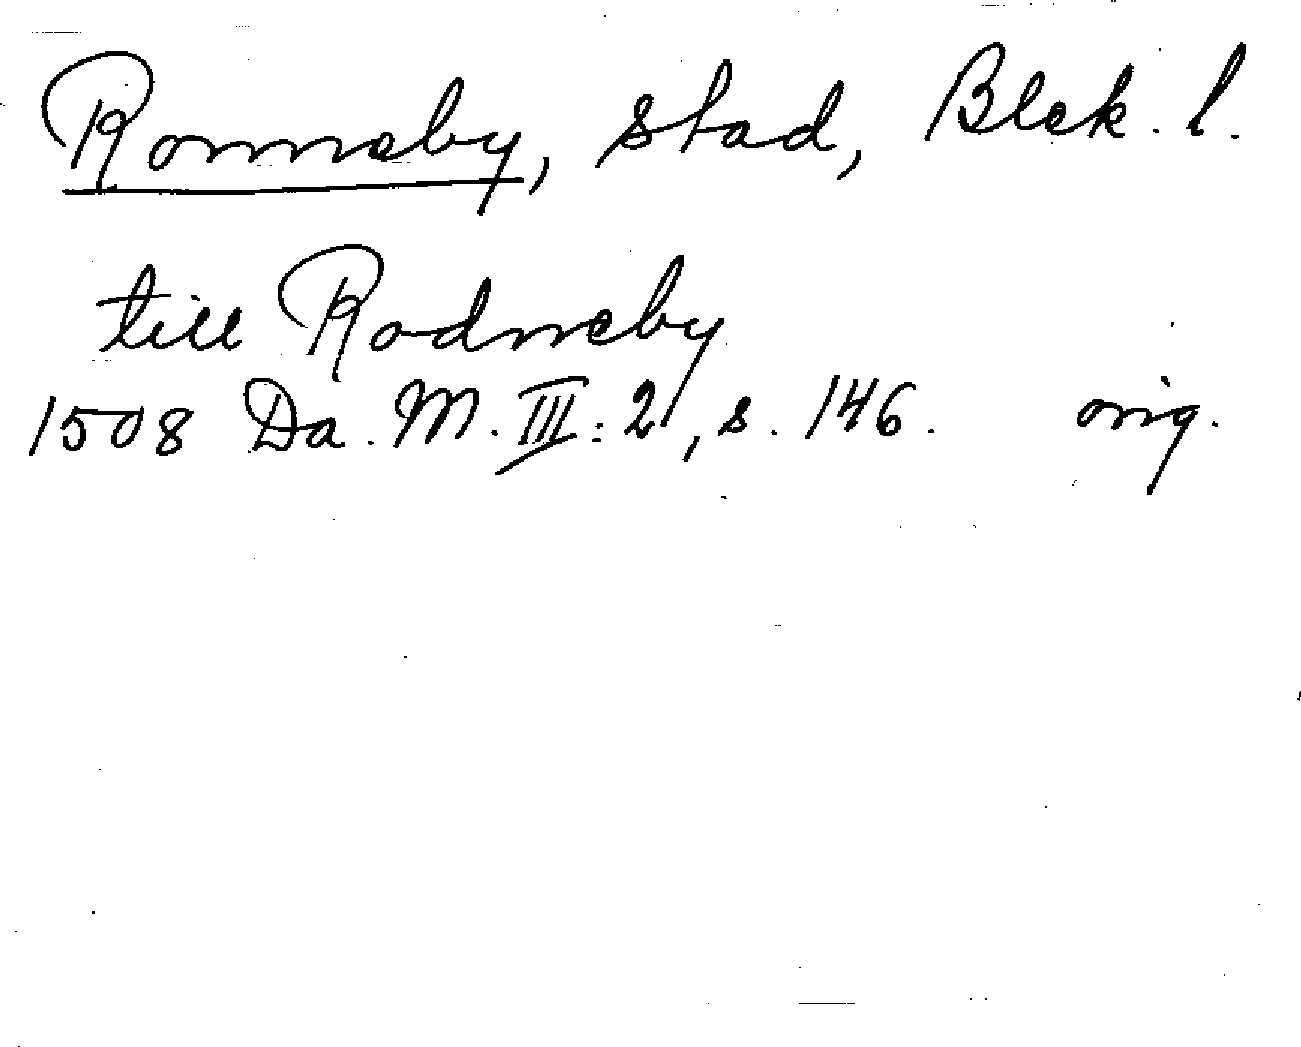 Ronneby, stad, Blek. l.
till Rodneby
1508 Da. M. III: 2, s. 146. orig.